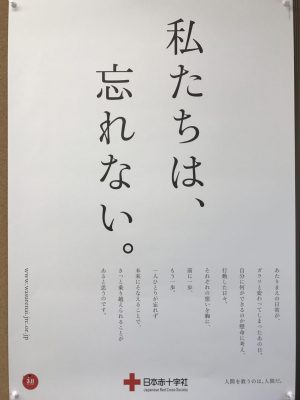 私たちは、
忘れない。
あたりまえの日常が、
ガラッと変わってしまったあの日。
自分に何ができるのか懸命に考え、
行動した日々。
それぞれの想いを胸に、
前に一歩、
もう一歩。
一人ひとりが忘れず
未来にそなえることで、
きっと乗り越えられることが
あると思うのです。
www.wasurenai.jrc.or.jp
3.11
日本赤十字社
Japanese Red Cross Society
人間を救うのは、人間だ。